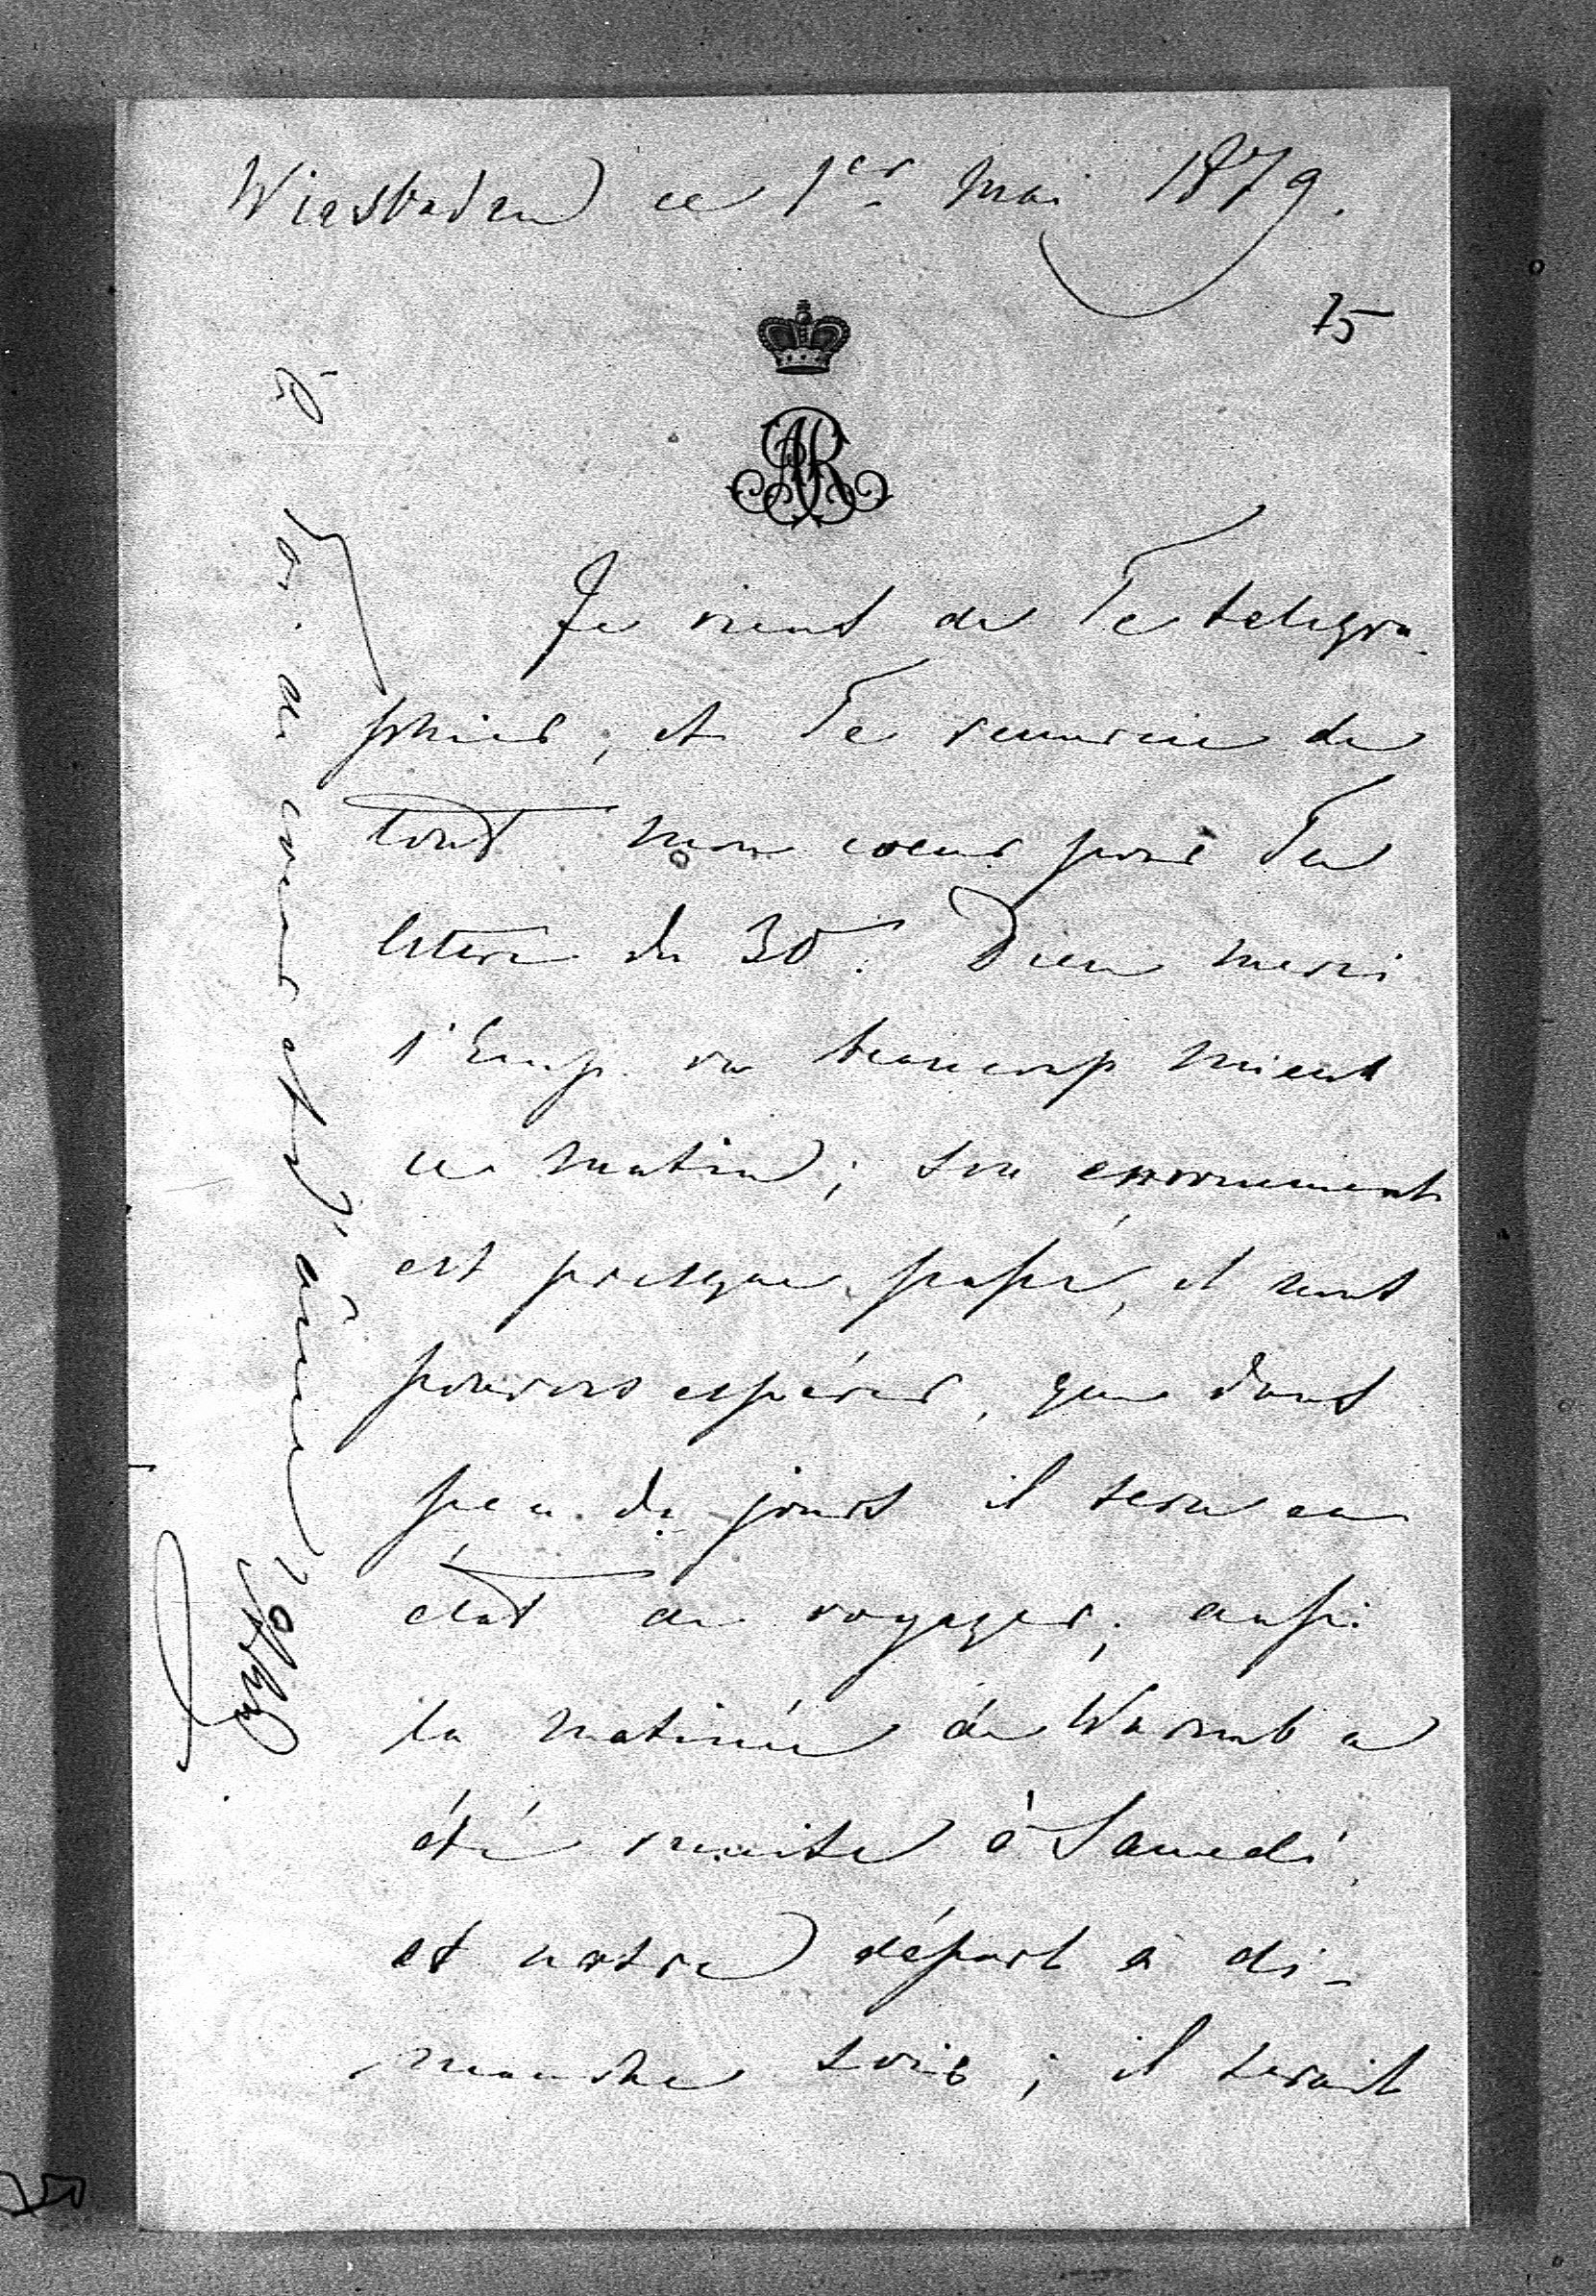 Wiesbaden ce 1er Mai 1879.
75
AR
Je viens de Te telegra-
phier, et Te remercie de
tout mon coeur pour Ta
lettre du 30. Dieu merci
l'Emp. va beaucoup mieux
ce matin; son enrouement
est presque passé, et nous
pouvons espérer, que dans
peu de jours il sera en
état de voyager; aussi
la matinée de a
été remise à Samedi,
et notre départ à di-
manche soir; il serait
à Toi de coeur et d'âme